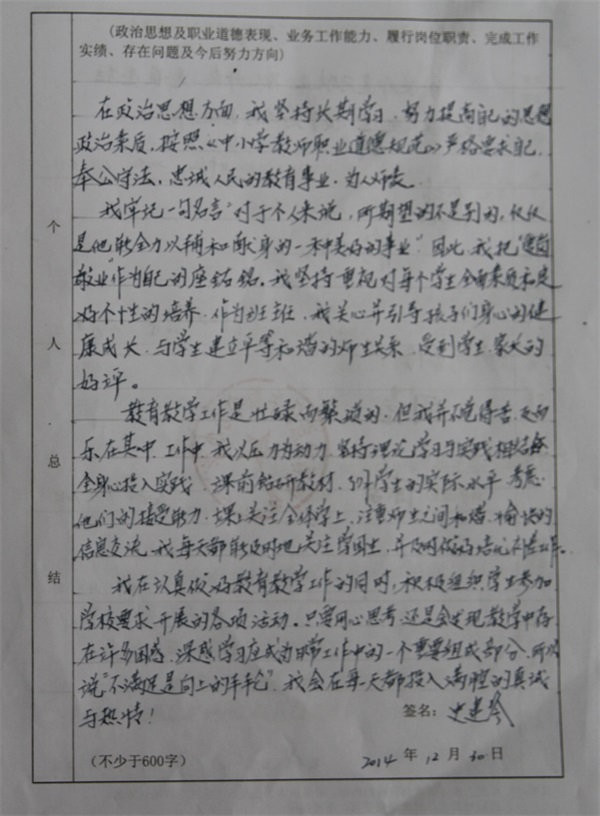 (政治思想及职业道德表现、业务工作能力、履行岗位职责、完成工作
实绩、存在问题及今后努力方向)
个人总结
在政治思想方面,我坚持长期学习,努力提高自己的思想
政治素质,按照《中小学教师职业道德规范》严格要求自己,
奉公守法,忠诚人民的教育事业,为人师表。
我牢记一句名言"对于个人来说,所期望的不是别的,仅仅
是他能全力以赴和献身的一种美好的事业"因此,我把"爱岗
敬业"作为自己的座右铭。我坚持重视对每个学生全面素质和良
好个性的培养,作为班主任,我关心并引导孩子们身心的健
康成长,与学生建立平等和谐的师生关系,受到学生、家长的
好评。
教育教学工作是忙碌而繁琐的,但我并不觉得苦,反而
乐在其中,工作中,我以压力为动力,坚持理论学习与实践相结合
全身心投入实践,课前钻研教材,分析学生的实际水平,考虑
他们的接受能力,课上关注全体学生,注重师生之间和谐、愉快的
信息交流,我每天都能及时地关注学困生,并及时做好培优补差工作。
我在认真做好教育教学工作的同时,积极组织学生参加
学校要求开展的各项活动。只要用心思考,还是会发现教学中存
在许多困惑,深感学习应成为日常工作中的一个重要组成部分,所以
说"不满足是向上的车轮",我会在每一天都投入满腔的真诚
与热情!
签名:史建琴
(不少于600字)
2014年12月30日